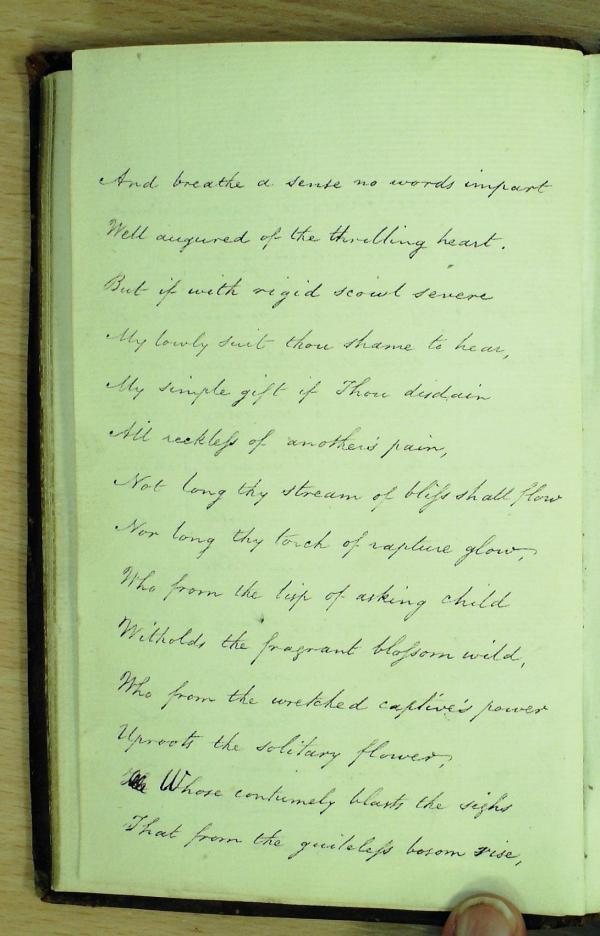 And breathe a sense no words impart
Well augured of the thrilling heart.
But if with rigid scowl severe
My lowly suit thou shame to hear,
My simple gift if Thou disdain
All reckleſs of another's pain,
Not long thy stream of bliſs shall flow
Nor long thy torch of rapture glow,
Who from the lisp of asking child
Witholds the fragrant bloſsom wild,
Who from the wretched captive's power
Uproots the solitary flower,
Whose contumely blasts the sighs
That from the guileleſs bosom rise,